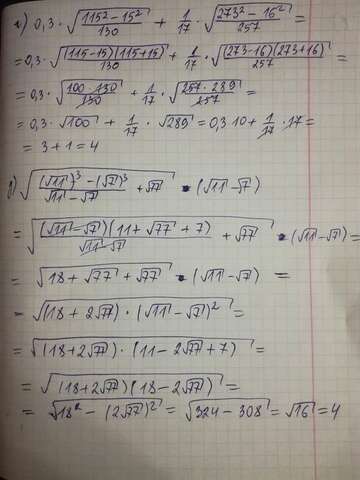 а) 0,3 · √((115² − 15²)/130) + 1/17 · √((273² − 16²)/257) =
= 0,3 · √((115−15)(115+15)/130) + 1/17 · √((273−16)(273+16)/257) =
= 0,3 · √(100·130/130) + 1/17 · √(257·289/257) =
= 0,3 · √100 + 1/17 · √289 = 0,3·10 + 1/17 · 17 =
= 3 + 1 = 4
б) √(((√11)³ − (√7)³)/(√11 − √7) + √77) · (√11 − √7)
= √((√11 − √7)(11 + √77 + 7)/(√11 − √7) + √77) · (√11 − √7) =
= √(18 + √77 + √77) · (√11 − √7) =
= √((18 + 2√77) · (√11 − √7)²) =
= √((18+2√77) · (11 − 2√77 + 7)) =
= √((18+2√77)(18 − 2√77)) =
= √(18² − (2√77)²) = √(324 − 308) = √16 = 4